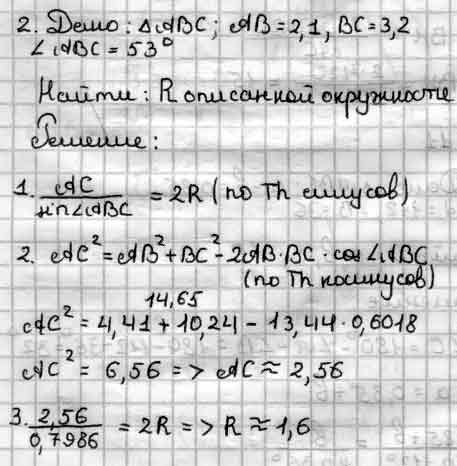 2. Дано: △ABC; AB=2,1, BC=3,2
∠ABC=53°
Найти: R описанной окружности
Решение:
1. AC/sin∠ABC = 2R (по Th синусов)
2. AC² = AB² + BC² - 2AB·BC · cos∠ABC
(по Th косинусов)
14,65
AC² = 4,41 + 10,24 - 13,44 · 0,6018
AC² = 6,56 => AC ≈ 2,56
3. 2,56/0,7986 = 2R => R ≈ 1,6